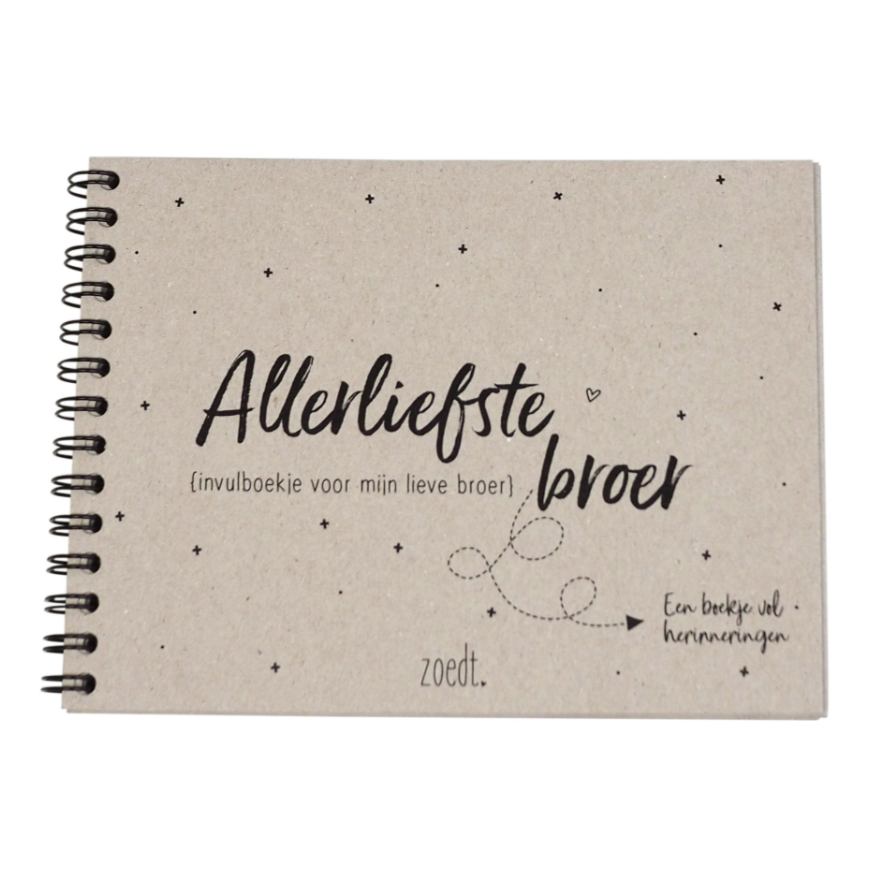 Allerliefste
broer
{invulboekje voor mijn lieve broer}
Een boekje vol
herinneringen
zoedt.